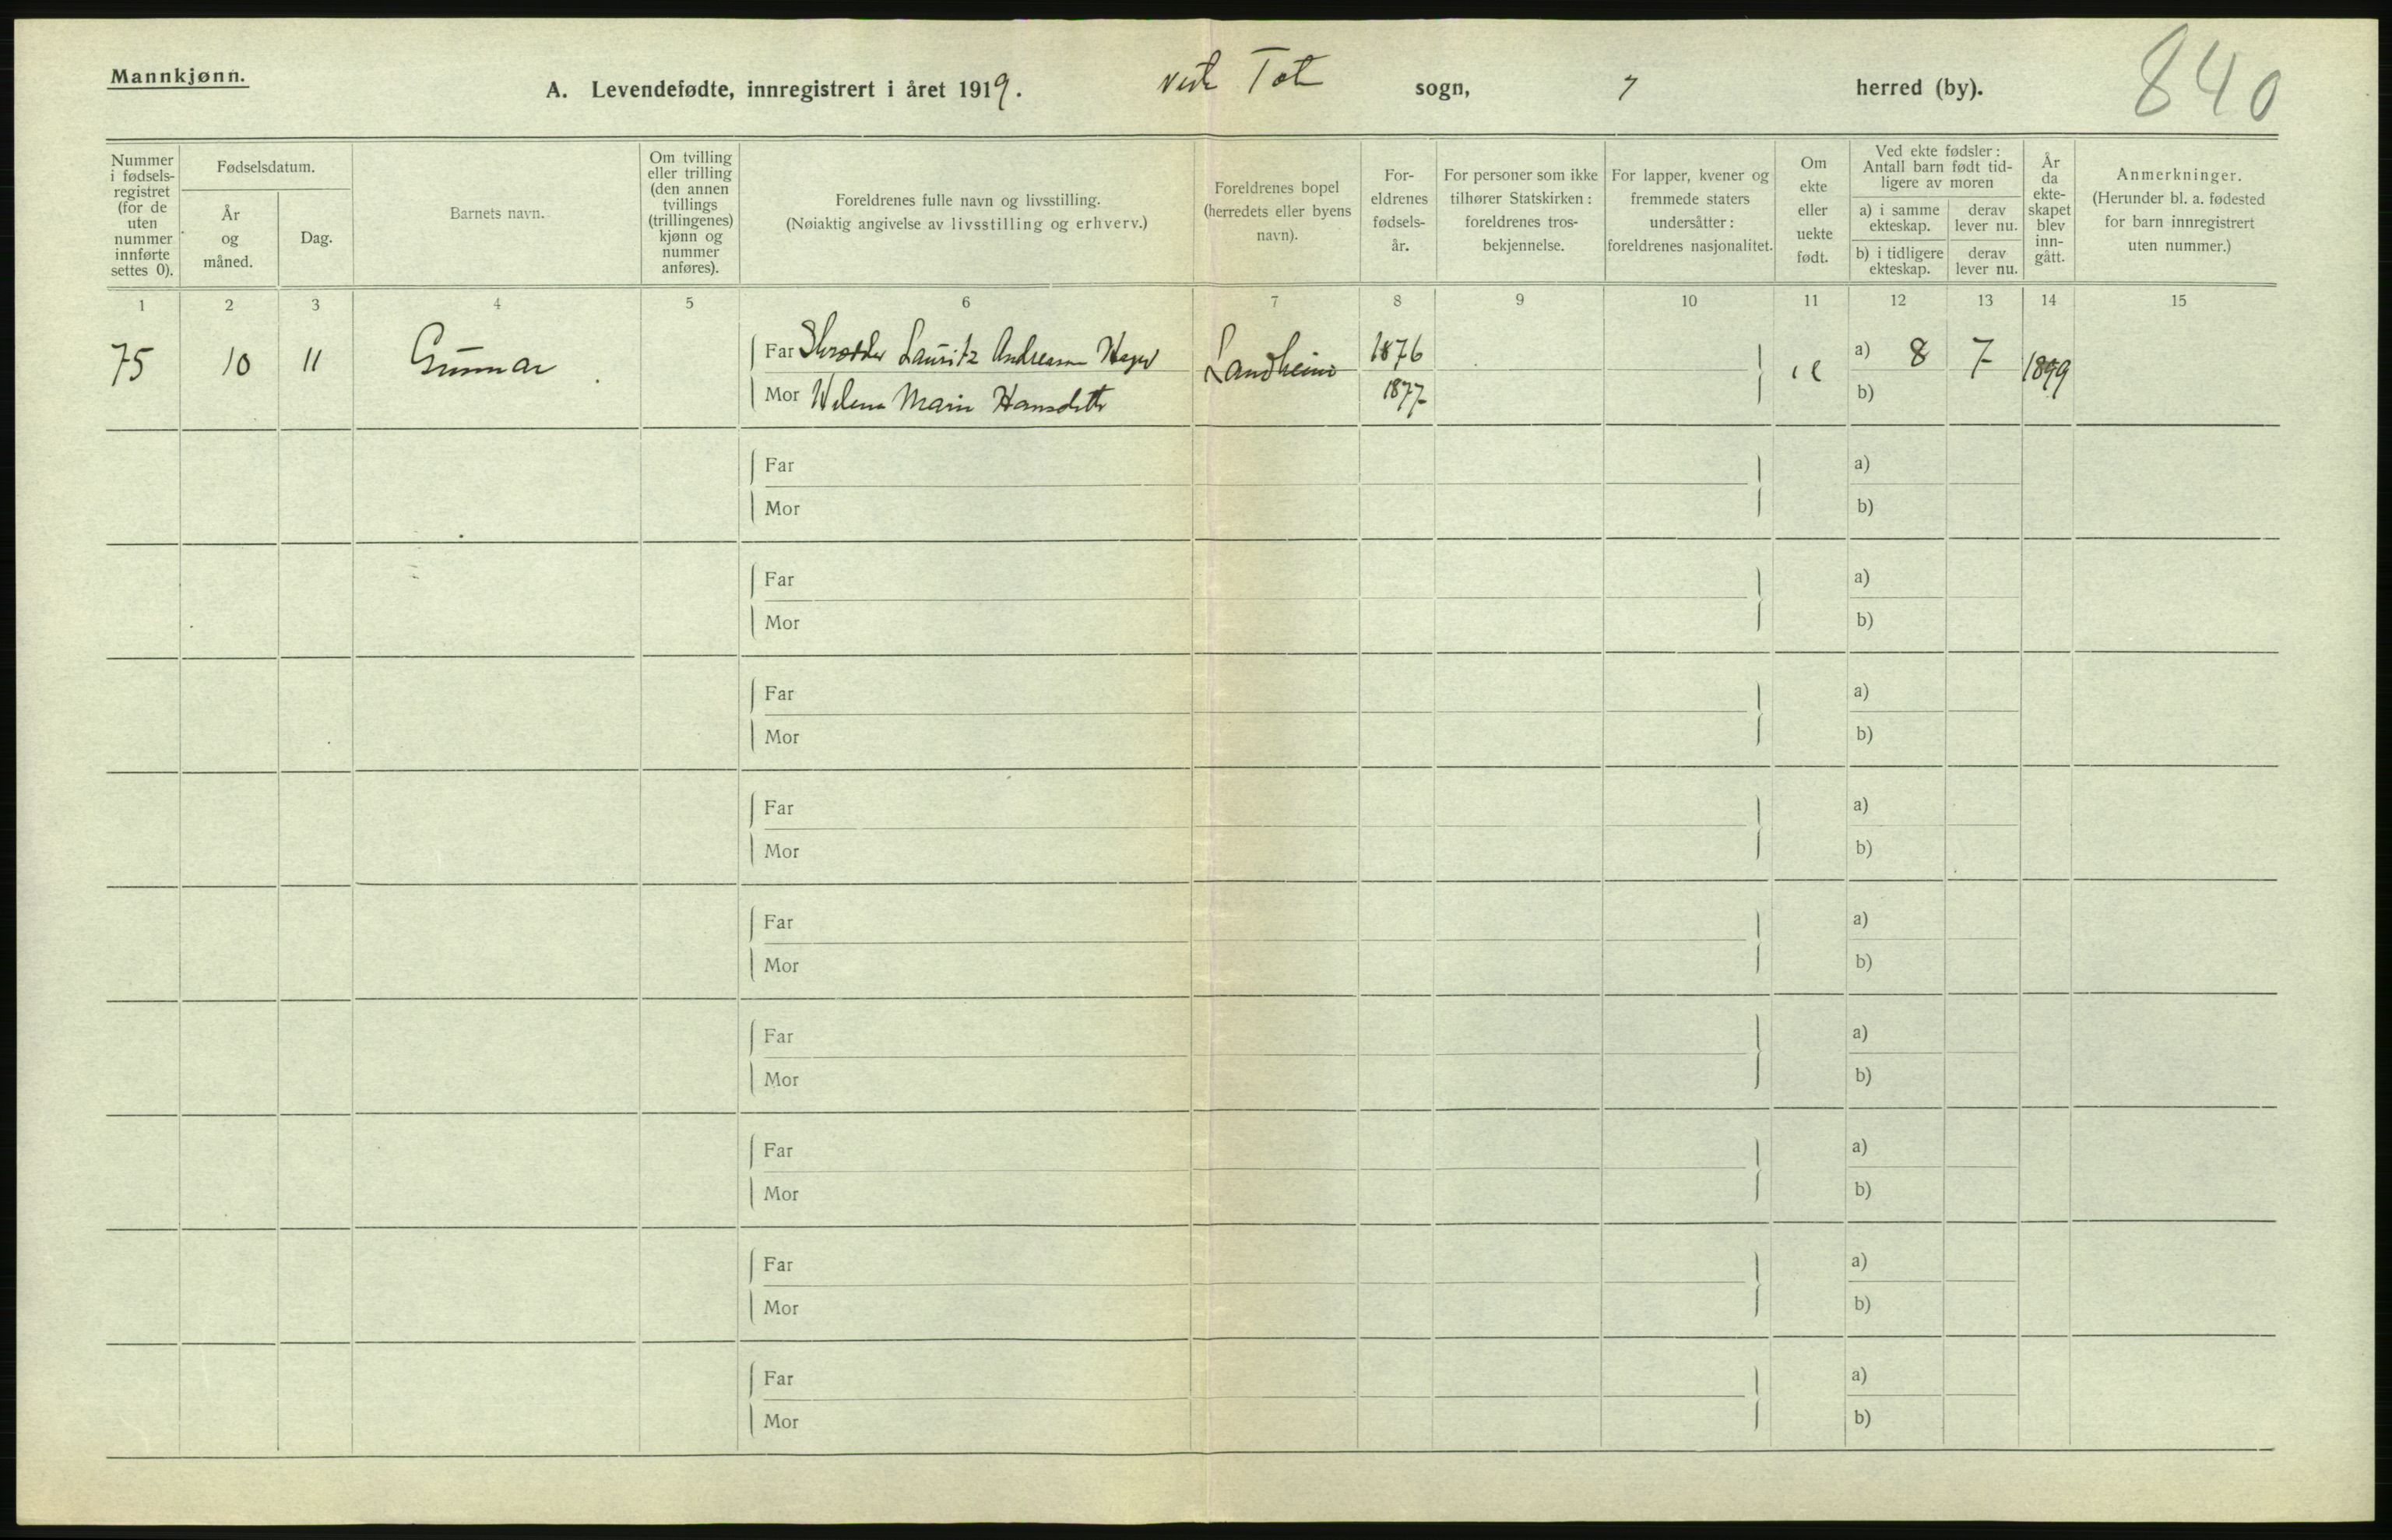 Mannkjønn.
A. Levendefødte, innregistrert i året 1919. Tot sogn, herred (by).
840
Nummer i fødsels-registret (for de uten nummer innførte settes 0).
Fødselsdatum.
År og måned.
Dag.
Barnets navn.
Om tvilling eller trilling (den annen tvillings (trillingenes) kjønn og nummer anføres).
Foreldrenes fulle navn og livsstilling.
(Nøiaktig angivelse av livsstilling og erhverv.)
Foreldrenes bopel (herredets eller byens navn).
For-eldrenes fødsels-år.
For personer som ikke tilhører Statskirken: foreldrenes tros-bekjennelse.
For lapper, kvener og fremmede staters undersåtter: foreldrenes nasjonalitet.
Om ekte eller uekte født.
Ved ekte fødsler: Antall barn født tid-ligere av moren
a) i samme ekteskap.
derav lever nu.
b) i tidligere ekteskap.
derav lever nu.
År da ekte-skapet blev inn-gått.
Anmerkninger.
(Herunder bl. a. fødested for barn innregistrert uten nummer.)
1 2 3 4 5 6 7 8 9 10 11 12 13 14 15
75 10 11 Gunnar Far Lauritz Andreasen 1876 a) 8 7 1899
Mor Marie Hansdttr Landheim 1877 b)
Far a)
Mor b)
Far a)
Mor b)
Far a)
Mor b)
Far a)
Mor b)
Far a)
Mor b)
Far a)
Mor b)
Far a)
Mor b)
Far a)
Mor b)
Far a)
Mor b)